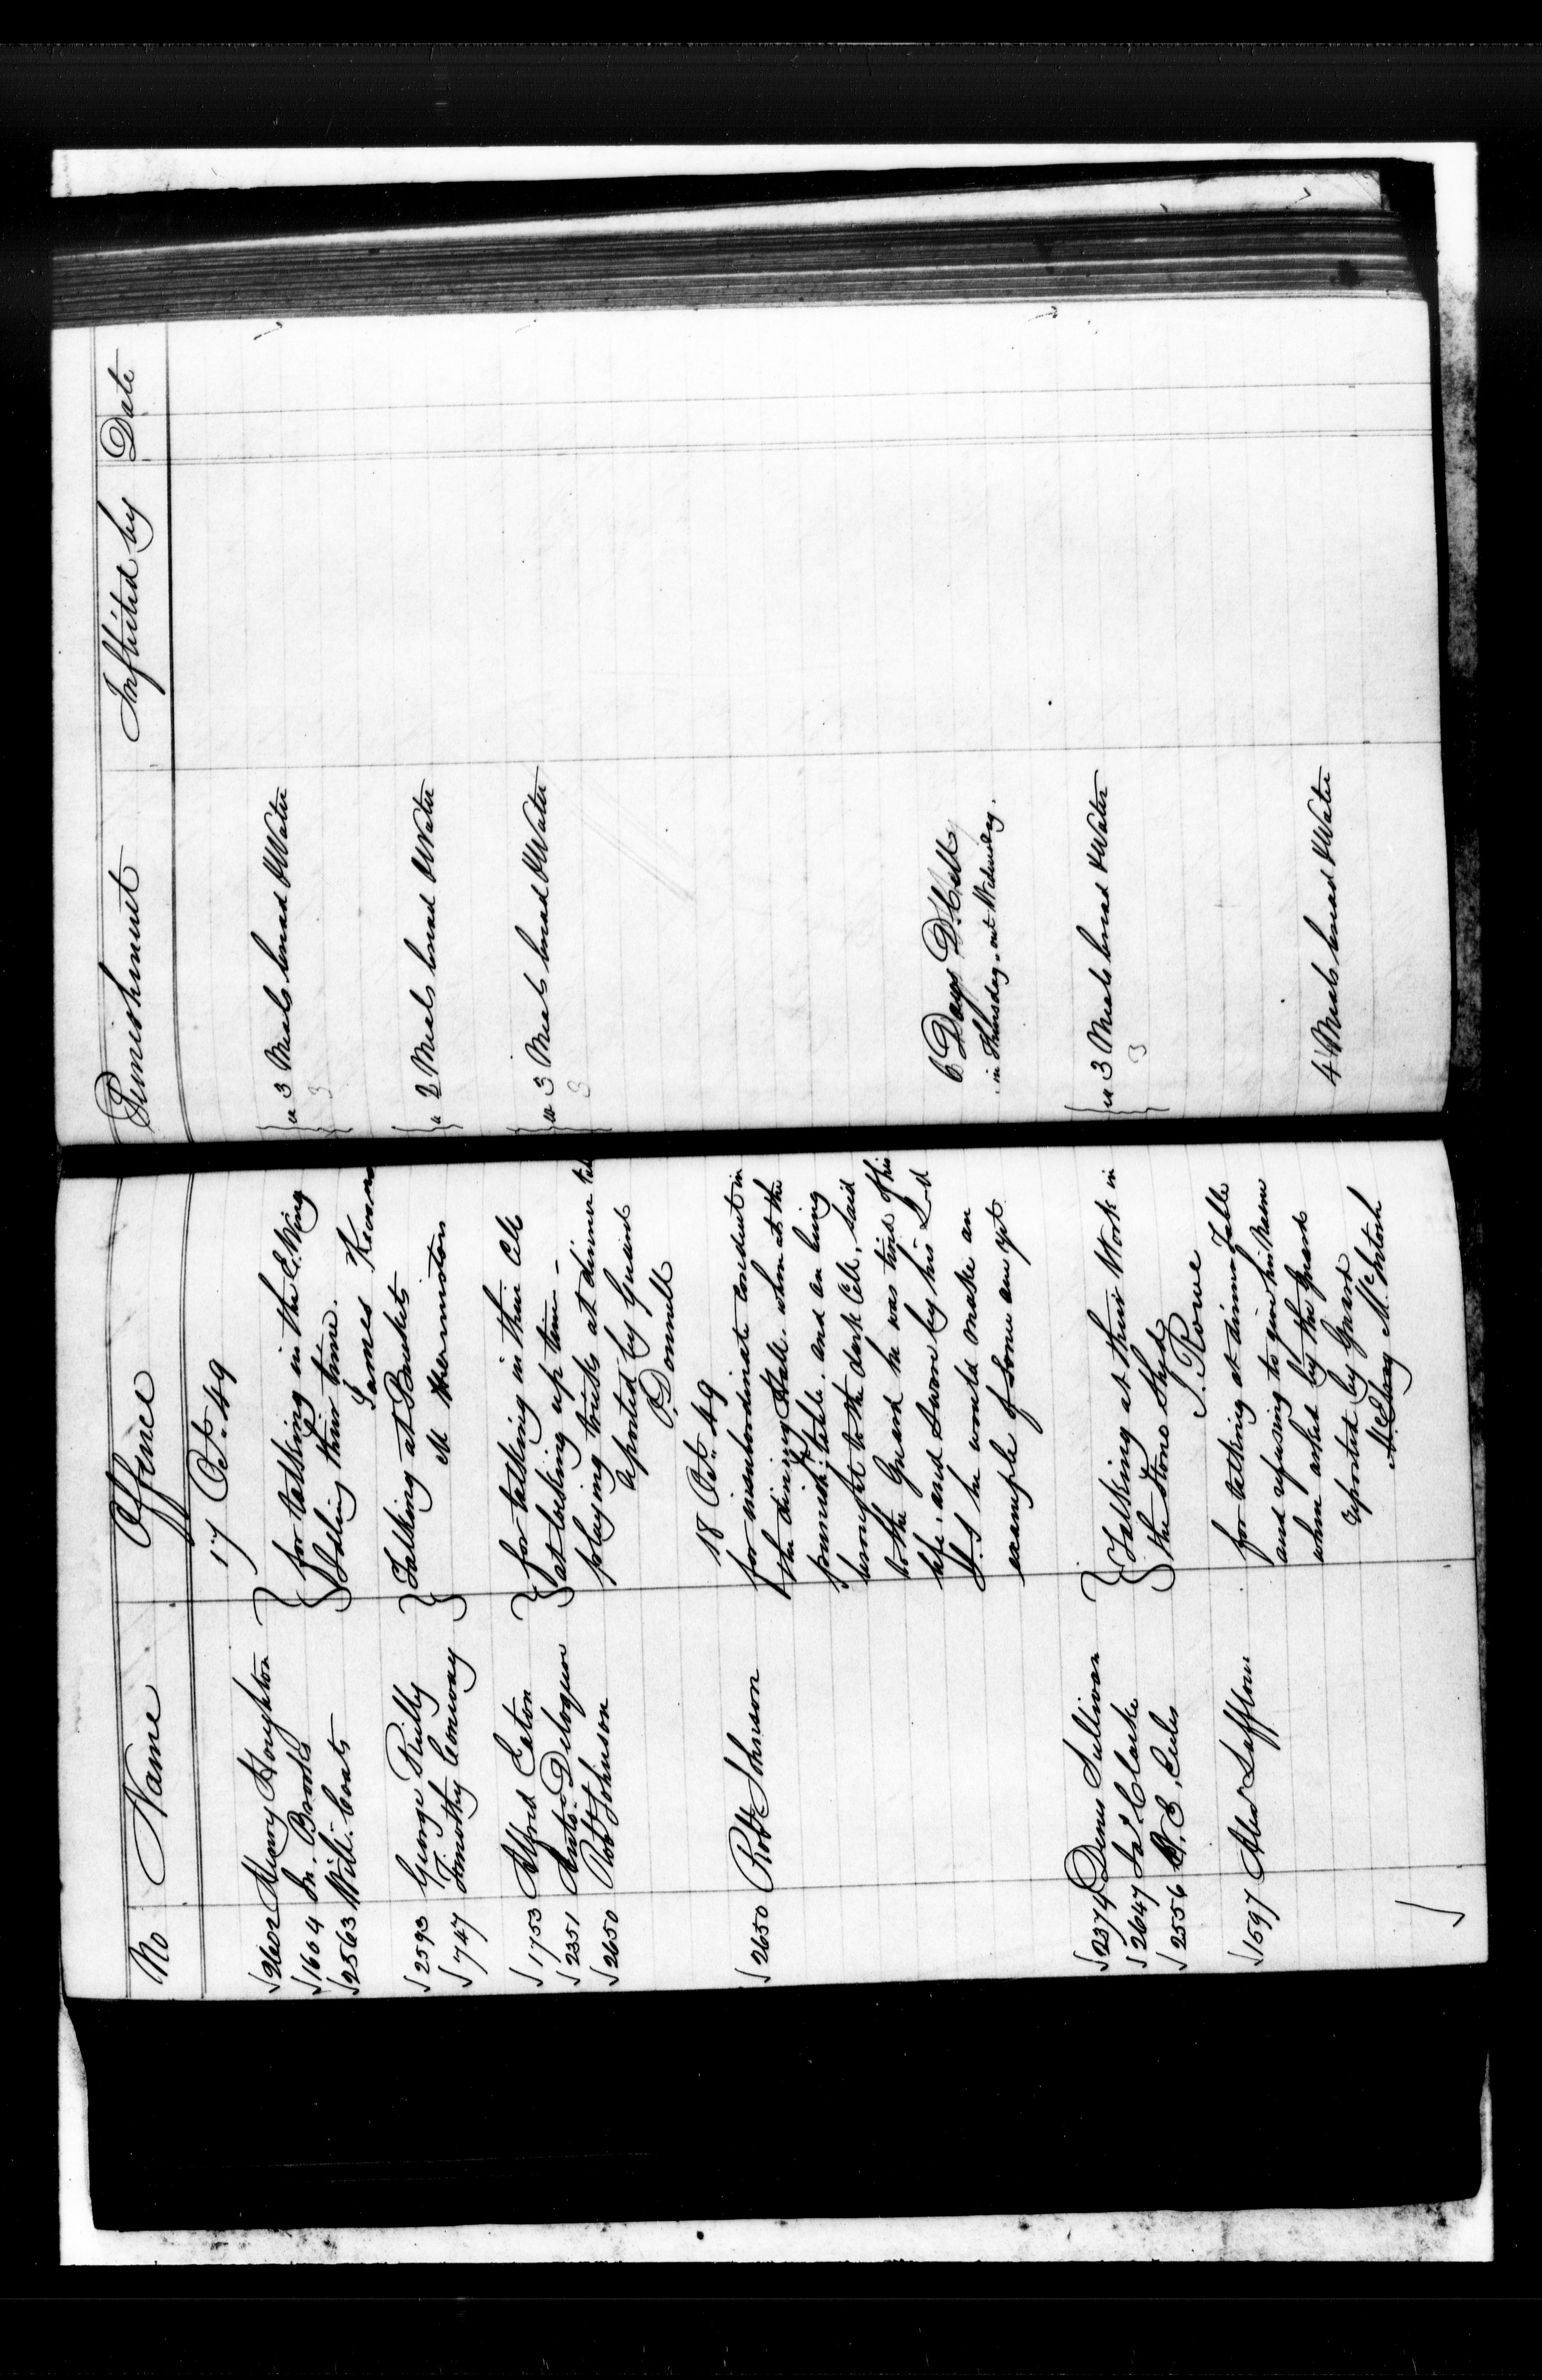 No Name Offence Punishment Inflicted by Date
17 Oct. 49
2602 Henry Houghton } for talking in the E. Wing } ea 3 Meals bread & Water
1604 Jn. Brooks } Idling their time. 3
2563 Will. Coats James Keenan
2593 George Reilly } Talking at Buckets } ea 2 Meals bread & Water
747 Timothy Conway } M Hermiston
1753 Alfred Eaton } for talking in their Cells } ea 3 Meals bread & Water
2351 Anto. Deloguer } at locking up time - 3
2650 Robt Johnson playing tricks at dinner tabl
reported by Guard
O'Donnell
18 Oct. 49
2650 Robt Johnson for insubordinate conduct in
the dining Hall when at the
punish: table, and on being
brought to the dark Cell, said
to the Guard he was tired of his
life, and Swore by his L-d
G.. d he would make an 6 Days D. Cell
example of Some one yet in Thursday, out Wednesday.
2374 Denis Sullivan } Talking at their Work in } ea 3 Meals bread & Water
2647 Jas Clarke } the Stone Shed 3
2556 E. Eccles T. Rowe
1597 Alexr Lafflour for talking at dinner Table
and refusing to give his Name
when asked by the Guard 4 Meals bread & Water
reported by Guard
McElroy McIntosh